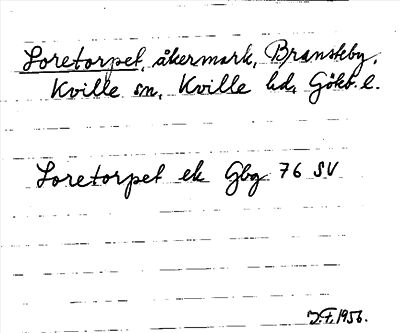 Loretorpet, åkermark, Bransteby,
Kville sn, Kville hd, Götbo. l.
Loretorpet ek Gbg 76 SV
1956.